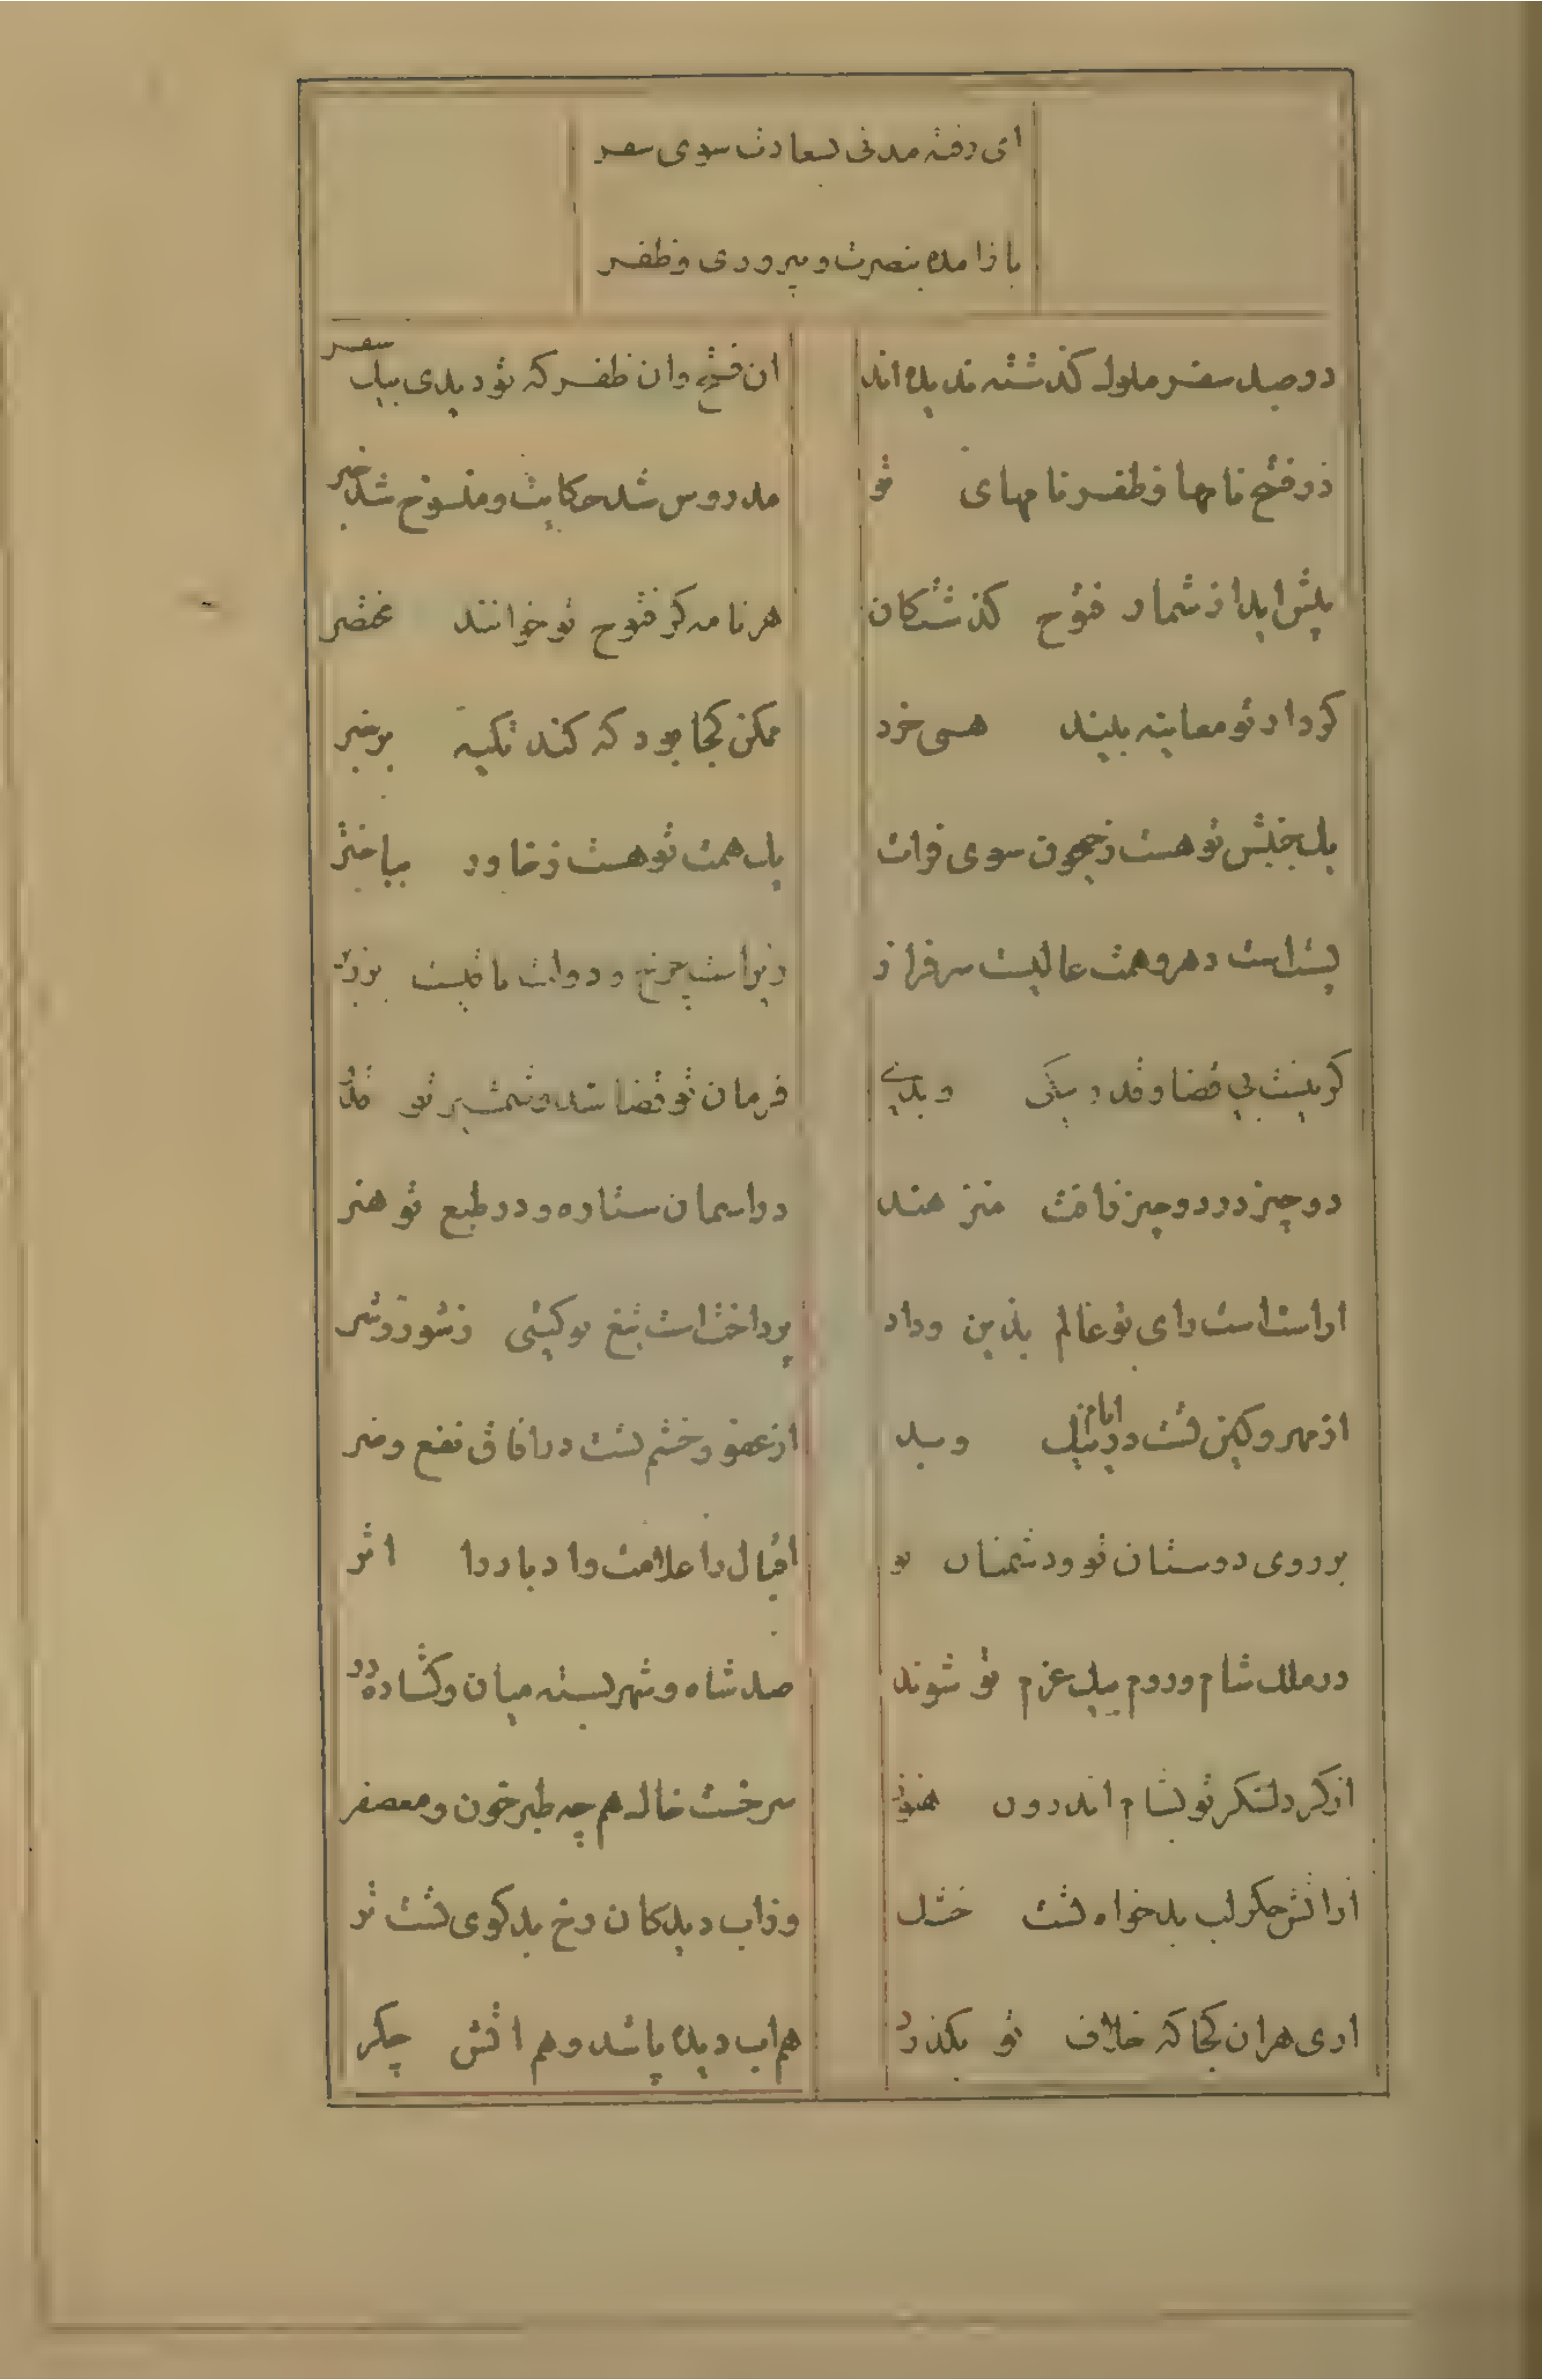 ای رفته مدتی بسعادت سوی سفر
باز امده بنصرت و پیروزی و ظفر
در صد سفر ملوک گذشته ندیده اند
ان فتح و ان ظفر که تو دیدی بیک سفر
از فتح نامها و ظفر نامهای تو
مدروس شد حکایت و منسوخ شد خبر
بیش اید از شمار فتوح گذشتگان
هر نامه کز فتوح تو خوانند مختصر
کردار تو معاینه بیند همی خرد
ممکن کجا بود که کند تکیه بر خبر
یک جنبش تو هست ز جیحون سوی فرات
یک همت تو هست ز خاور بباختر
پست است دهر و همت عالیت سرفراز
زیر است چرخ و دولت باقیت بر زبر
گر نیست بی قضا و قدر نیکی و بدی
فرمان تو قضا شد و شمشیر تو قدر
دو چیز در دو چیز فافت منزهند
در اسمان ستاره و در طبع تو هنر
اراست است رای تو عالم بدین و داد
پرداخت است تیغ تو گیتی ز شور و شر
از مهر و کین تست در ایام نیک و بد
از عفو و خشم تست در افاق نفع و ضر
بر روی دوستان تو و دشمنان تو
اقبال را علامت و ادبار را اثر
در ملک شام و روم بیک عزم تو شوند
صد شاه و شهر بسته میان و گشاده در
از گرد لشکر تو بشام اندرون هنوز
سرخست خاک هم چه طبر خون و معصفر
از اتش جگر لب بدخواه تست خشک
وز اب دیدگان رخ بدگوی تست تر
اری هر ان کجا که خلاف تو بگذرد
هم اب دیده باشد و هم اتش جگر